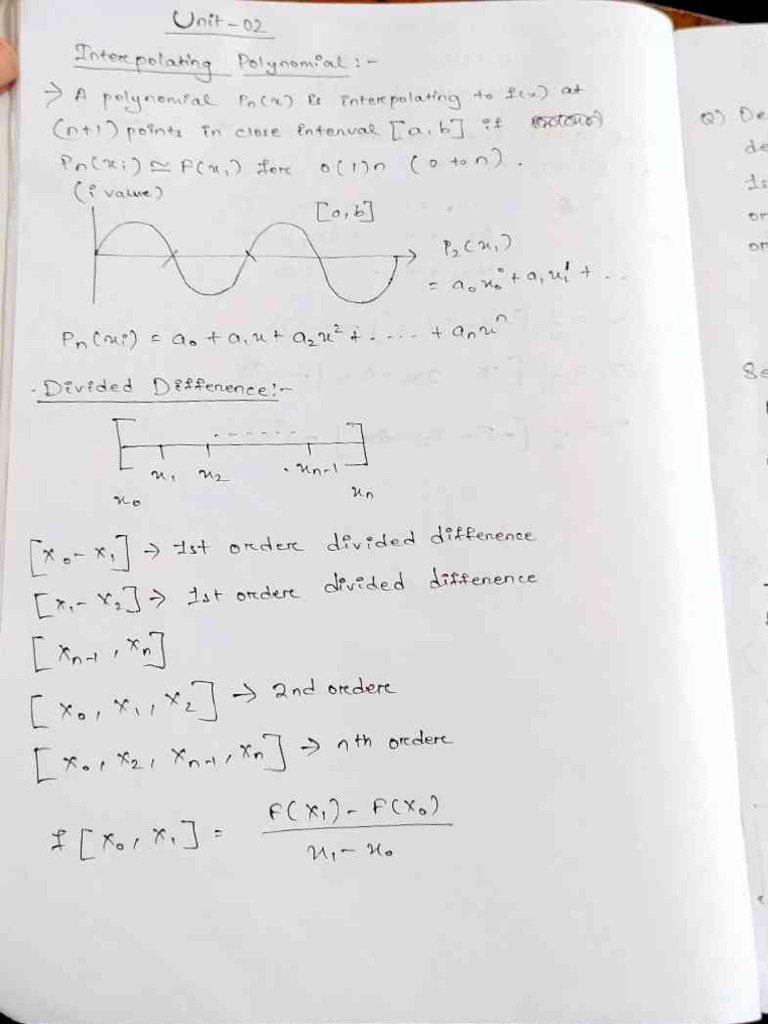 Unit-02
Interpolating Polynomial :-
→ A polynomial Pn(x) is interpolating to f(x) at
(n+1) points in close interval [a,b] if
Pn(xi) ≃ F(xi) for 0(1)n (0 to n).
(i value)
[a,b]
P2(x1)
= a0x0⁰ + a1x1¹ + ..
Pn(xi) = a0 + a1x + a2x² + ..... + anxⁿ
Divided Difference:-
.......
x1 x2 xn-1
x0 xn
[x0 - x1] → 1st order divided difference
[x1 - x2] → 1st order divided difference
[xn-1, xn]
[x0, x1, x2] → 2nd order
[x0, x2, xn-1, xn] → nth order
f[x0, x1] = F(x1) - F(x0)
x1 - x0
Q) De
de
1s
or
or
Se